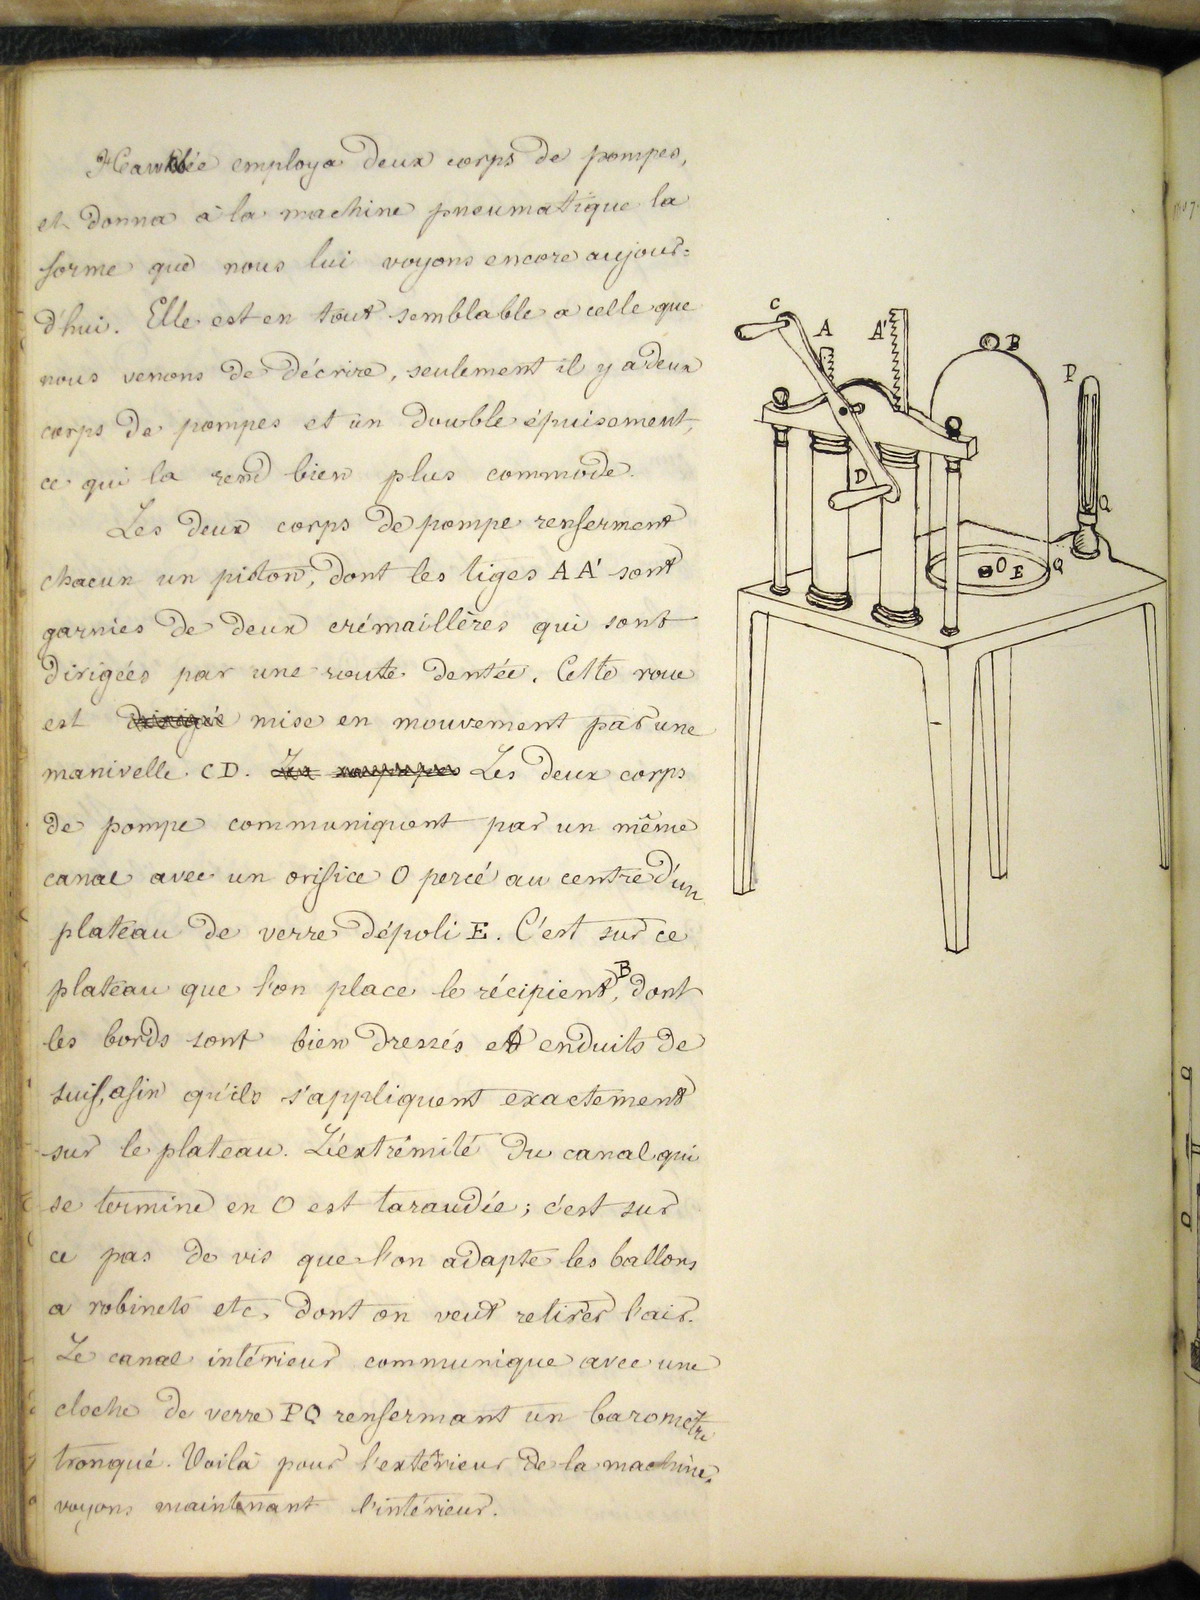 Hawksbée employa deux corps de pompes,
et donna à la machine pneumatique la
forme que nous lui voyons encore aujour=
d'hui. Elle est en tout semblable a celle que
nous venons de décrire, seulement il y a deux
corps de pompes et un double épuisement,
ce qui la rend bien plus commode.
Les deux corps de pompe renferment
chacun un piston, dont les tiges AA' sont
garnies de deux crémaillères qui sont
dirigées par une route dentée. Cette roue
est dirigée mise en mouvement par une
manivelle CD. Les deux corps
de pompe communiquent par un même
canal avec un orifice O percé au centre d'un
plateau de verre dépoli E. C'est sur ce
plateau que l'on place le récipient B, dont
les bords sont bien dressés et enduits de
suif, afin qu'ils s'appliquent exactement
sur le plateau. L'extrémité du canal qui
se termine en O est taraudée; c'est sur
ce pas de vis que l'on adapte les ballons
a robinets etc. dont on veut retirer l'air.
Le canal intérieur communique avec une
cloche de verre PQ renfermant un baromètre
tronqué. Voilà pour l'extérieur de la machine,
voyons maintenant l'intérieur.
C
A
A'
B
P
D
Q
O E
Q